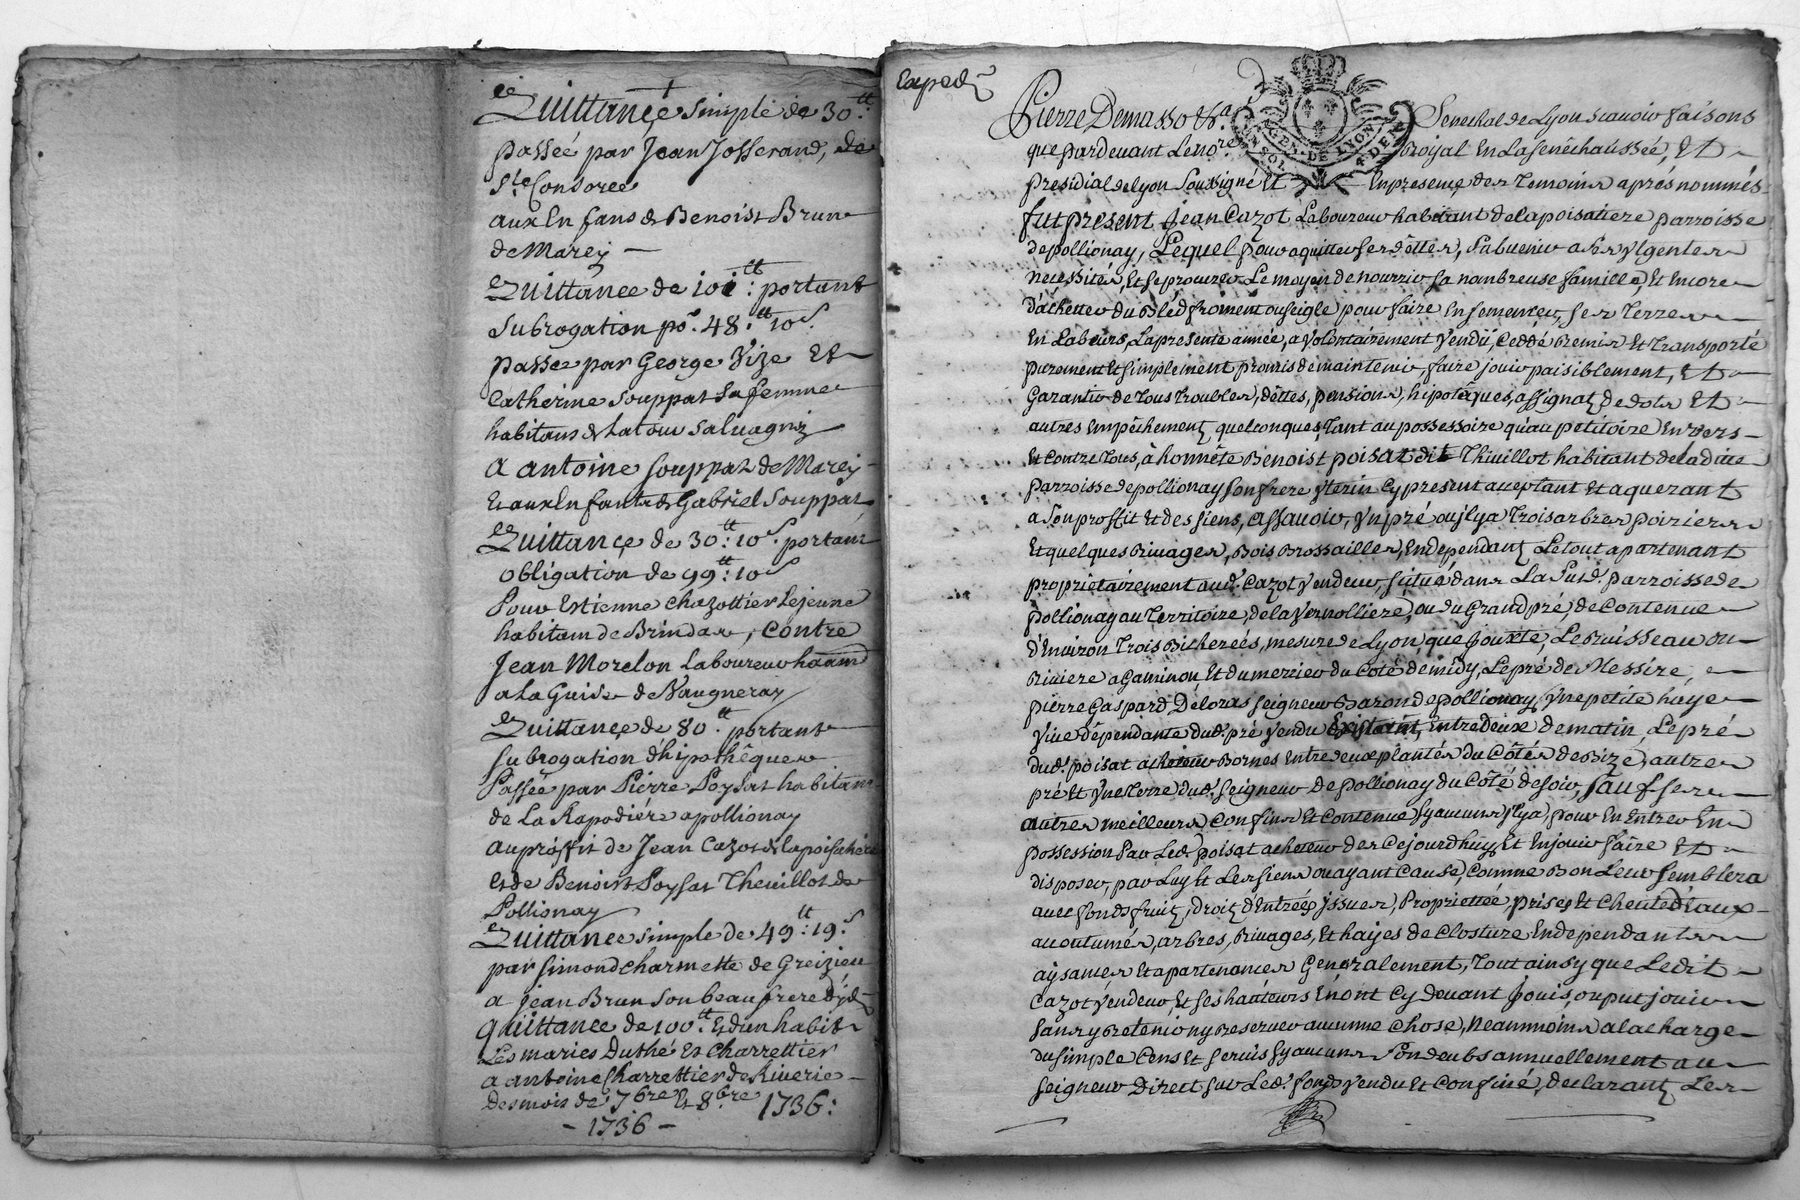 Quittançe simple de 30ᵗᵗ:
passée par Jean Josserand, de
Ste Consorce
aux Enfans de Benoist Brun
de Marcy —
Quittance de 101ᵗᵗ: portant
Subrogation po.ʳ 48:ᵗᵗ 10ˢ
passée par George Vize Et
Catherine Souppat Sa femme
habitans de Latour Salvagny
a antoine Souppat de Marcy
Et aux Enfants de Gabriel Souppat
Quittançe de 30:ᵗᵗ 10ˢ. portant
obligation de 99:ᵗᵗ 10ˢ
Pour Estienne Chazottier Lejeune
habitant de Brindas, Contre
Jean Morelon Laboureur
a La Guise de Vaugneray
Quittançe de 80ᵗᵗ. portant
Subrogation dhipothêques
Passée par Pierre Poysat habitant
de La Rapodiére a pollionay
au proffit de Jean Cazot de lapoisatiere
Et de Benoist Poysat Thevillot de
Pollionay
Quittance simple de 49:ᵗᵗ 19ˢ
par Simond charmette de Greizieu
a Jean Brun Son beaufrere
quittance de 100:ᵗᵗ
Les maries Duthé Et Charrettier
a antoine Charrettier de Riverie
Des mois de 7bre Et 8bre 1736:
- 1736 -
Expedié
Pierre Demasso &ᵃ. Senechal de Lyon Scavoir faisons
GEN. DE LYON
que pardevant Le nore. Royal En La Senéchaussée, Et
presidial de Lyon Soussigné Et En presence des Temoins aprés nommés
fut present Jean Cazot Laboureur habitant de lapoisatiere parroisse
de pollionay, Lequel pour aquitter ses dêttes, Subvenir a Ses Urgentes
necessités, Et Se procurer Le moyen de nourrir Sa nombreuse famille, Et Encore
d'achetter du bléd froment ou seigle pour faire Ensemencer, ses Terres
En Labeurs, La presente année, a Volontairement Vendu, Ceddé Remis Et Transporté
purement Et simplement promis de maintenir, faire jouir paisiblement, Et
Garantir de Tous Troubles, dêttes, pensions, hipotéques, assignat de dots Et
autres Empêchements quelconques, Tant au possessoire qu'au petitoire Envers
Et Contre Tous, à honnête Benoist poisat dit Thivillot habitant de la dite
Parroisse de pollionay Son frere Uterin Cy present acceptant Et aquerant
a Son proffit Et des siens, assavoir, Un pré ou il y a Trois arbres poiriers
Et quelques Rivages, Bois Brossailles, En dependants Le tout apartenant
proprietairement aud.ᵗ Cazot Vendeur, Situé dans La Susd.ᵉ parroisse de
pollionay au Territoire, de la Vernolliere, ou du Grand pré, de Contenue
d'Environ Trois Bicherées, mesure de Lyon, que jouxte, Le Ruisseau ou
Riviere Et du du Coté de midy, Le pré de Messire,
pierre Gaspard Deloras Seigneur Baron de pollionay, Une petite haye
Vive dépendante dud.ᵗ pré Vendu Existant, Entredeux de matin, Le pré
dud.ᵗ poisat acheteur Bornes Entredeux plantées du Côtés de Bize, autre
pré Et Une Terre dud.ᵗ Seigneur de pollionay du Côté de soir, Sauf ses
autres meilleurs Confins Et Contenue Sy aucuns Il y a, pour En Entrer En
possession Par Led.ᵗ poisat acheteur des Cejourdhuy Et En jouir faire Et
disposer, par Luy Et Les siens ou ayant Cause, Comme Bon Leur Semblera
avec fonds fruits, droits d'Entrées, issues, Proprietée, prises Et Cheute d'Eaux
accoutumés, arbres, Rivages, Et hayes de Closture En dependants
aysances Et apartenances Generalement, Tout ainsy que Ledit
Cazot Vendeur, Et ses hauteurs En ont Cy devant Jouis, ou put jouir
sans y Retenir ny Reserver aucune Chose, Neanmoins a la charge
du simple Cens Et Servis Sy aucuns Sont deubs annuellement au
Seigneur Direct Sur Led.ᵗ fonds Vendu Et Confiné, declarants Les